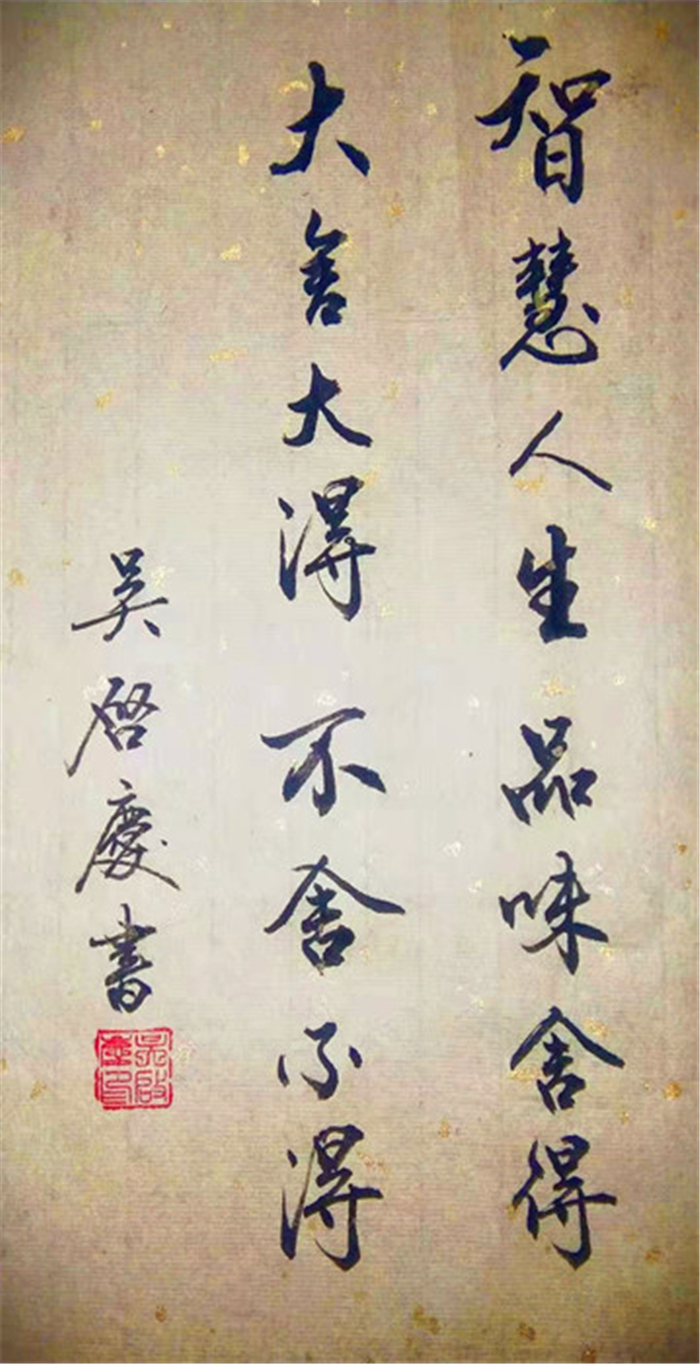 智慧人生品味舍得
大舍大得不舍不得
吴启慶書
吴启慶印